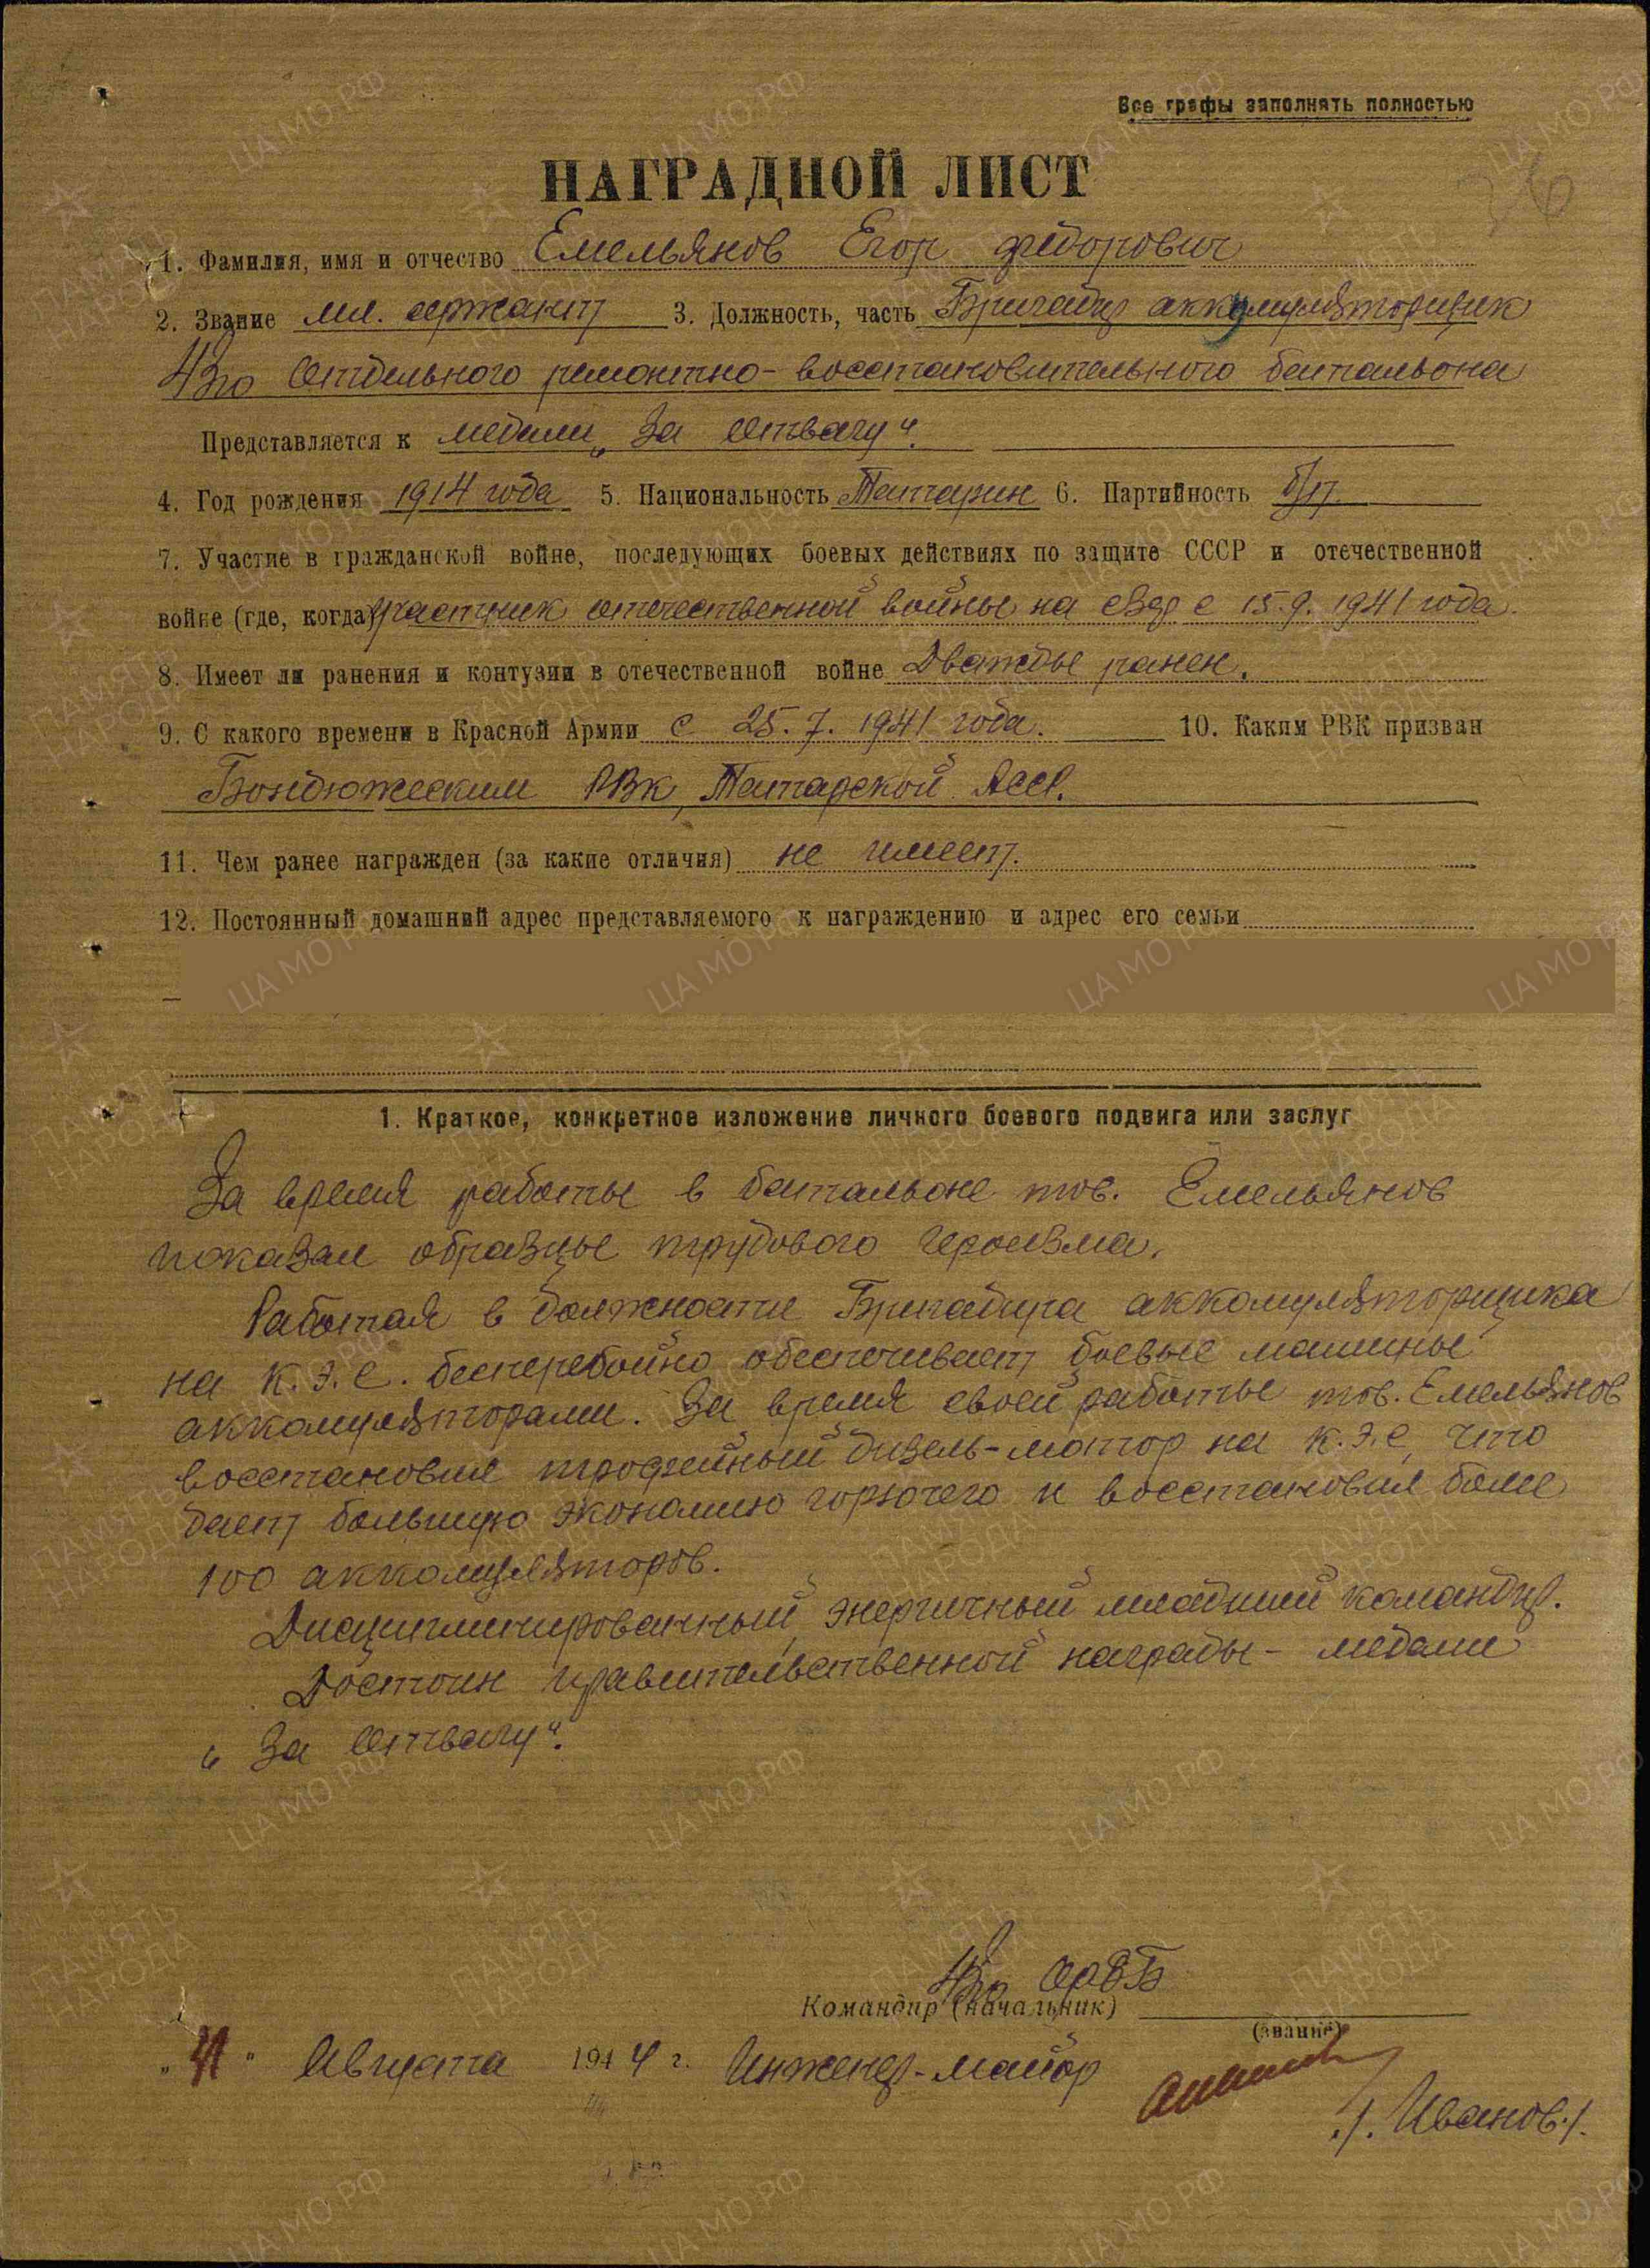 Все графы заполнять полностью
НАГРАДНОЙ ЛИСТ
1. Фамилия, имя и отчество Емельянов Егор Федорович
2. Звание мл. сержант 3. Должность, часть Бригадир аккомуляторщик
43го Отдельного ремонтно-восстановительного батальона
Представляется к медали „За Отвагу“.
4. Год рождения 1914 года 5. Национальность Татарин 6. Партийность б/п.
7. Участие в гражданской войне, последующих боевых действиях по защите СССР и отечественной
войне (где, когда) участник отечественной войны на с 15.9.1941 года.
8. Имеет ли ранения и контузии в отечественной войне Дважды ранен.
9. С какого времени в Красной Армии с 25.7.1941 года. 10. Каким РВК призван
Бондюжеским РВК, Татарской АССР.
11. Чем ранее награжден (за какие отличия) не имеет.
12. Постоянный домашний адрес представляемого к награждению и адрес его семьи
1. Краткое, конкретное изложение личного боевого подвига или заслуг
За время работы в батальоне тов. Емельянов
показал образцы трудового героизма.
Работая в должности Бригадира аккомуляторщика
на К.Э.С. бесперебойно обеспечивает боевые машины
аккомуляторами. За время своей работы тов. Емельянов
восстановил трофейный дизель-мотор на К.Э.С, что
дает большую экономию горючего и восстановил более
100 аккомуляторов.
Дисциплинированный, энергичный младший командир.
Достоин правительственной награды - медали
„За Отвагу“.
43го ОРВБ
Командир (начальник)
(звание)
Августа 1944 г. Инженер-майор
/. Иванов./.
ЦА МО РФ
ПАМЯТЬ НАРОДА